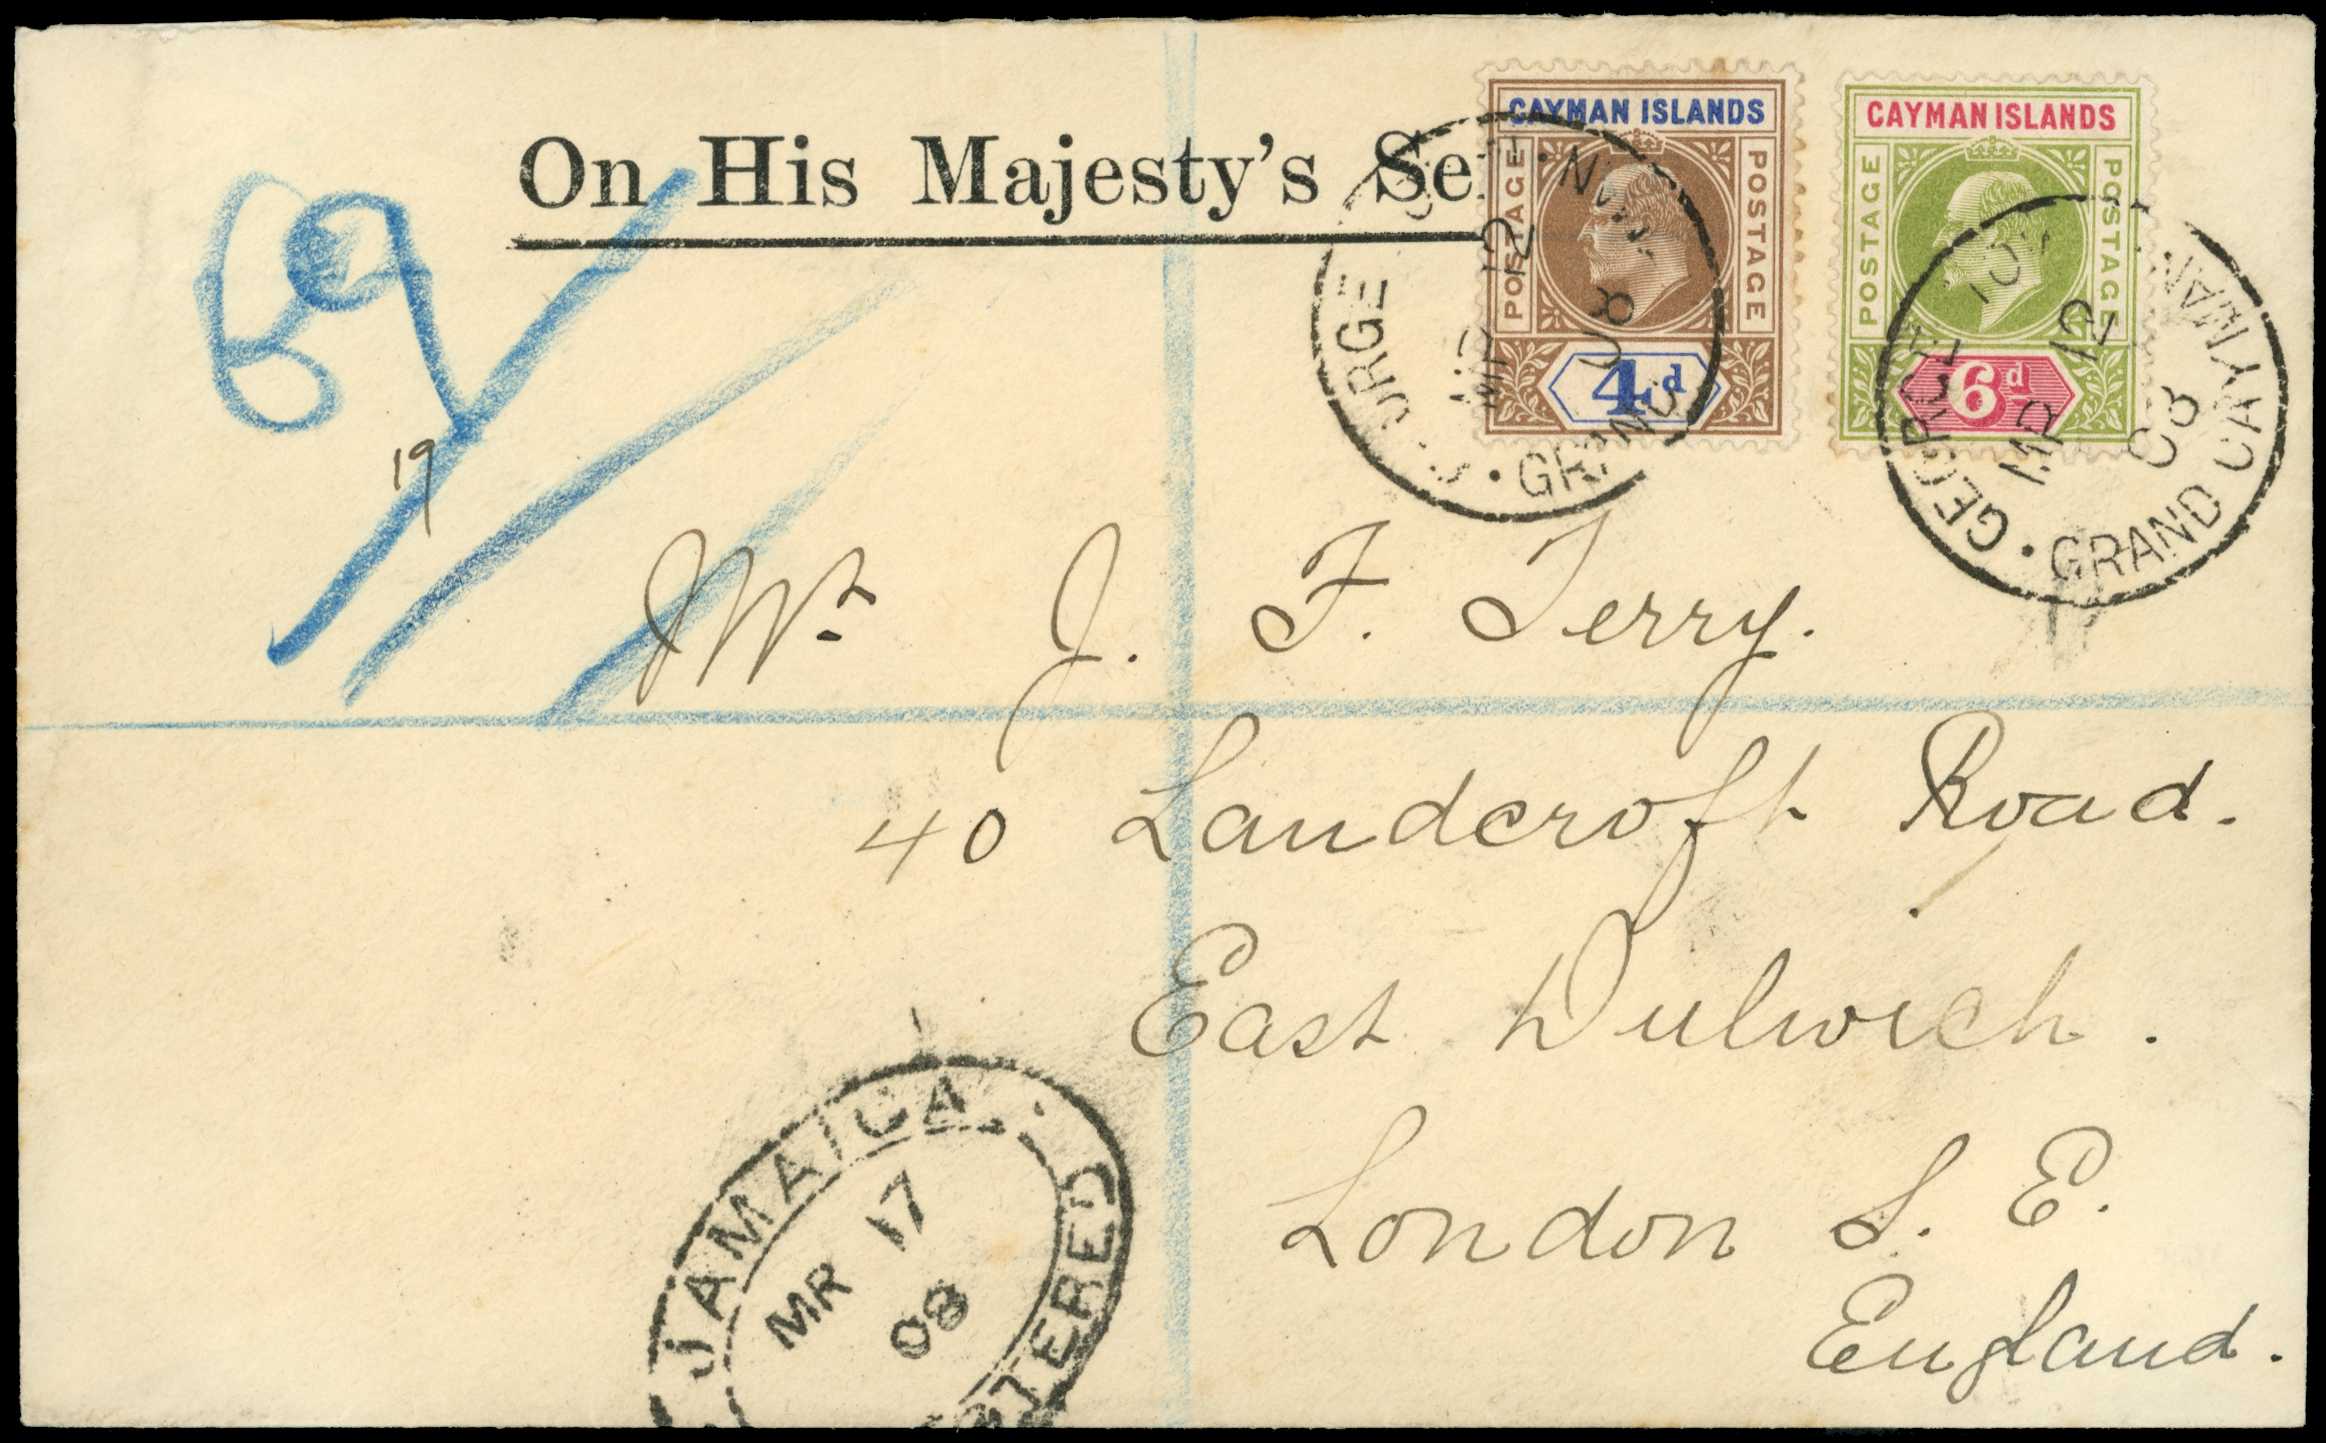 On His Majesty's Se
CAYMAN ISLANDS
POSTAGE POSTAGE
4d
CAYMAN ISLANDS
POSTAGE POSTAGE
6d
GRAND
MR 12
08
GEORGE TOW
GRAND CAYMAN
MR 12
08
69
19
Mr J. F. Terry.
40 Landcroft Road.
East Dulwich.
London S. E.
England.
JAMAICA
MR 17
08
STERED